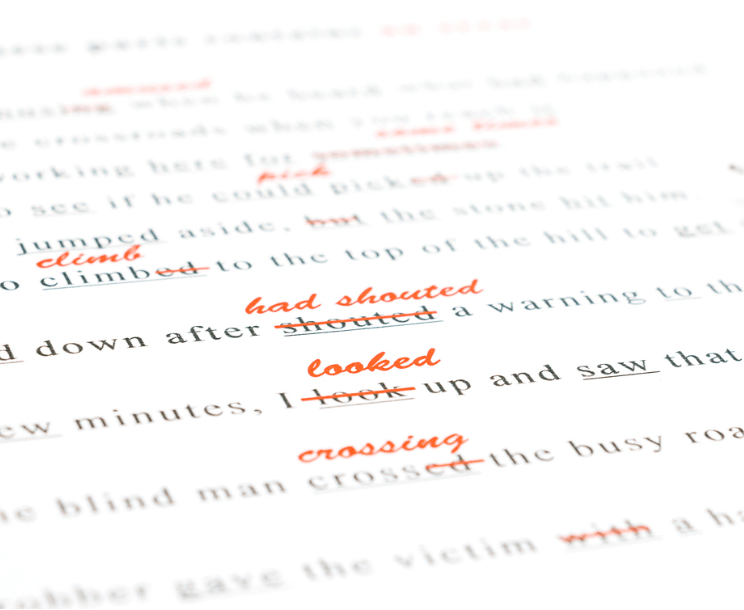 amused
when he heard what had happened
crossroads when you reach it
some times
working here for sometimes
pick
to see if he could picked up the trail
jumped aside, but the stone hit him.
climb
to climbed to the top of the hill to get
had shouted
down after shouted a warning to
looked
minutes, I look up and saw that
crossing
blind man crossed the busy
gave the victim with a